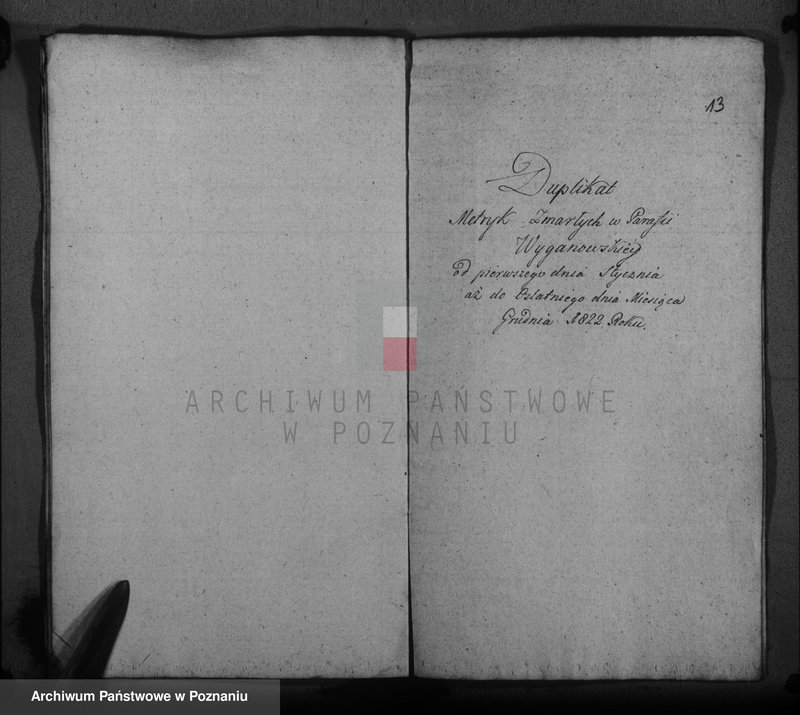 13
Duplikat
Metryk Zmarłych w Parafii
Wyganowskiéy
od pierwszego dnia Stycznia
aż do Ostatniego dnia Miesiąca
Grudnia 1822 Roku.
ARCHIWUM PAŃSTWOWE
W POZNANIU
Archiwum Państwowe w Poznaniu